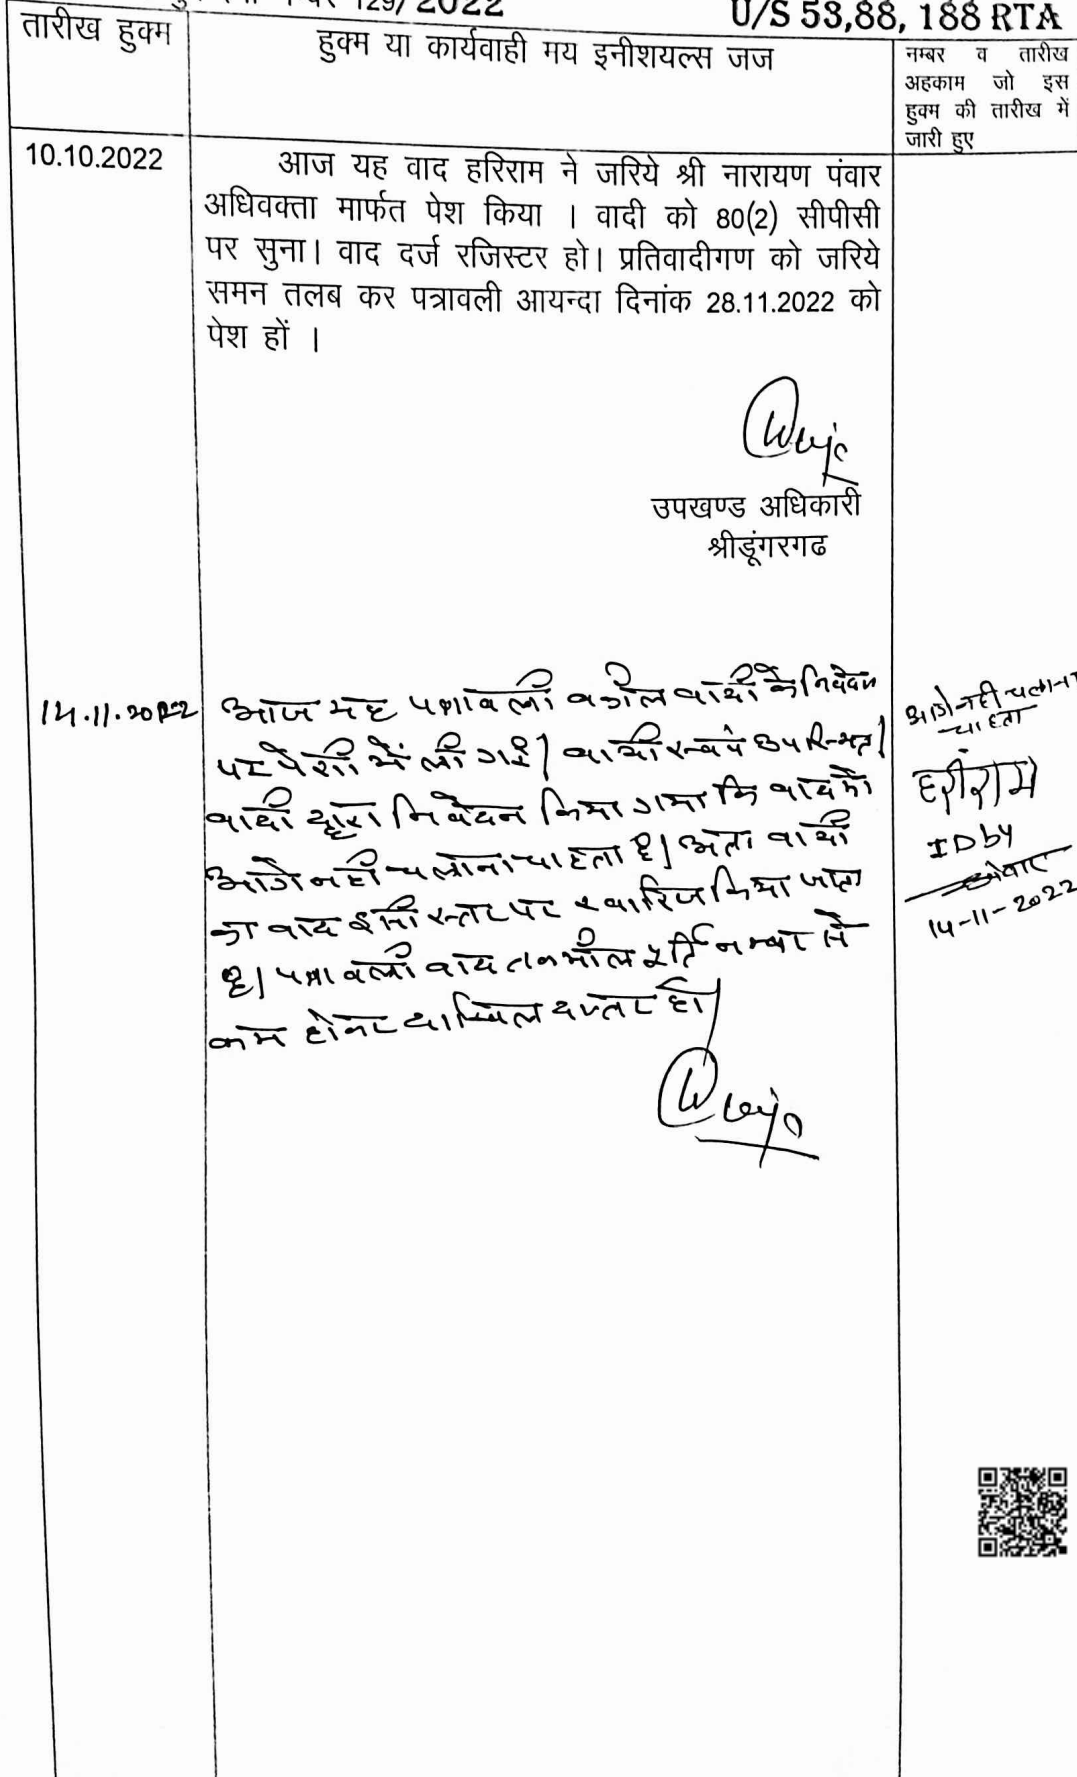 129/2022
U/S 53,88, 188 RTA
तारीख हुक्म
हुक्म या कार्यवाही मय इनीशयल्स जज
नम्बर व तारीख
अहकाम जो इस
हुक्म की तारीख में
जारी हुए
10.10.2022
आज यह वाद हरिराम ने जरिये श्री नारायण पंवार
अधिवक्ता मार्फत पेश किया । वादी को 80(2) सीपीसी
पर सुना। वाद दर्ज रजिस्टर हो। प्रतिवादीगण को जरिये
समन तलब कर पत्रावली आयन्दा दिनांक 28.11.2022 को
पेश हों ।
उपखण्ड अधिकारी
श्रीडूंगरगढ
14.11.2022
आज यह पत्रावली वकील वादी के निवेदन
पर पेशी में ली गई। वादी स्वयं उपस्थित।
वादी द्वारा निवेदन किया गया कि वाद को
आगे नहीं चलाना चाहता है। अतः वादी
का वाद इसी स्तर पर खारिज किया जाता
है। पत्रावली बाद तकमील पूर्ति नम्बर से
कम होकर दाखिल दफ्तर हो।
आगे नही चलाना
चाहता
हरीराम
IDby
14-11-2022